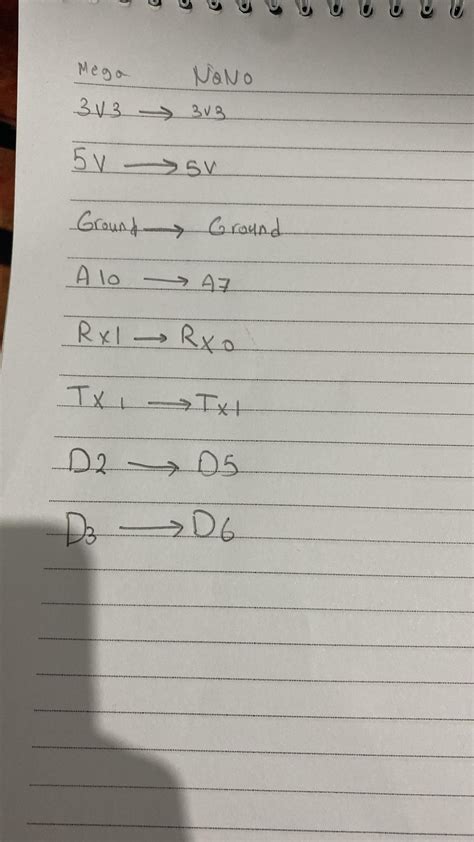 Mega NaNo
3V3 → 3V3
5V → 5V
Ground → Ground
A10 → A7
Rx1 → Rx0
Tx1 → Tx1
D2 → D5
D3 → D6